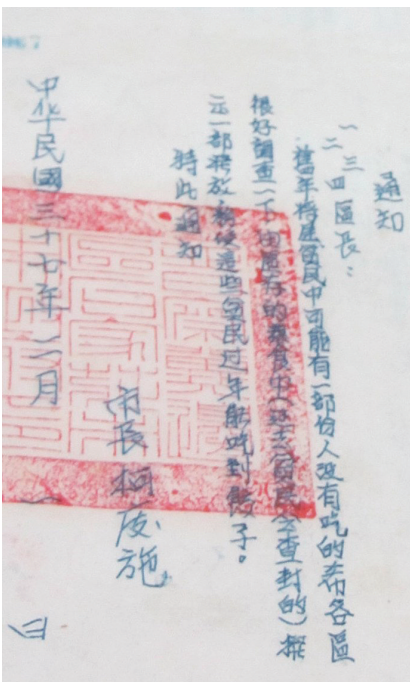 通知
一二三四區長：
舊年將屆貧民中可能有一部份人沒有吃的希各區
很好調查一下由區存的糧食中（過去公安局查封的）撥
示一部發放務使這些貧民过年能吃到餃子。
特此通知
市長柯慶施
中华民國三十七年二月 日